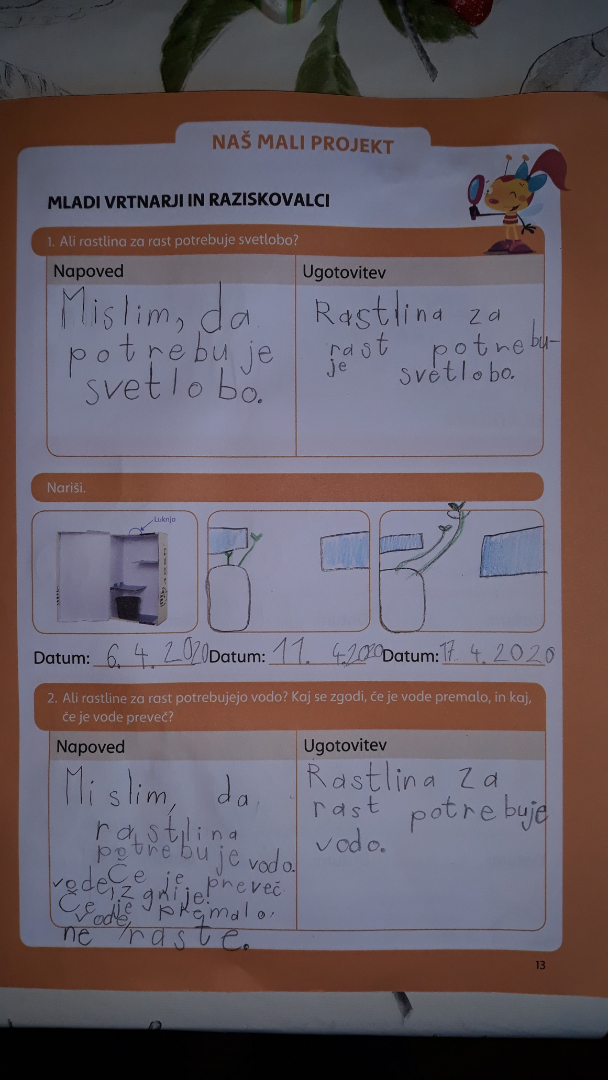 NAŠ MALI PROJEKT
MLADI VRTNARJI IN RAZISKOVALCI
1. Ali rastlina za rast potrebuje svetlobo?
Napoved
Ugotovitev
Mislim, da
potrebuje
svetlobo.
Rastlina za
rast potrebu-
je svetlobo.
Nariši.
Luknja
Datum: 6. 4. 2020 Datum: 11. 4. 2020 Datum: 17. 4. 2020
2. Ali rastline za rast potrebujejo vodo? Kaj se zgodi, če je vode premalo, in kaj,
če je vode preveč?
Napoved
Ugotovitev
Mislim, da
rastlina
potrebuje vodo.
Če je preveč
vode, izgnije.
Če je premalo
vode,
ne raste.
Rastlina za
rast potrebuje
vodo.
13